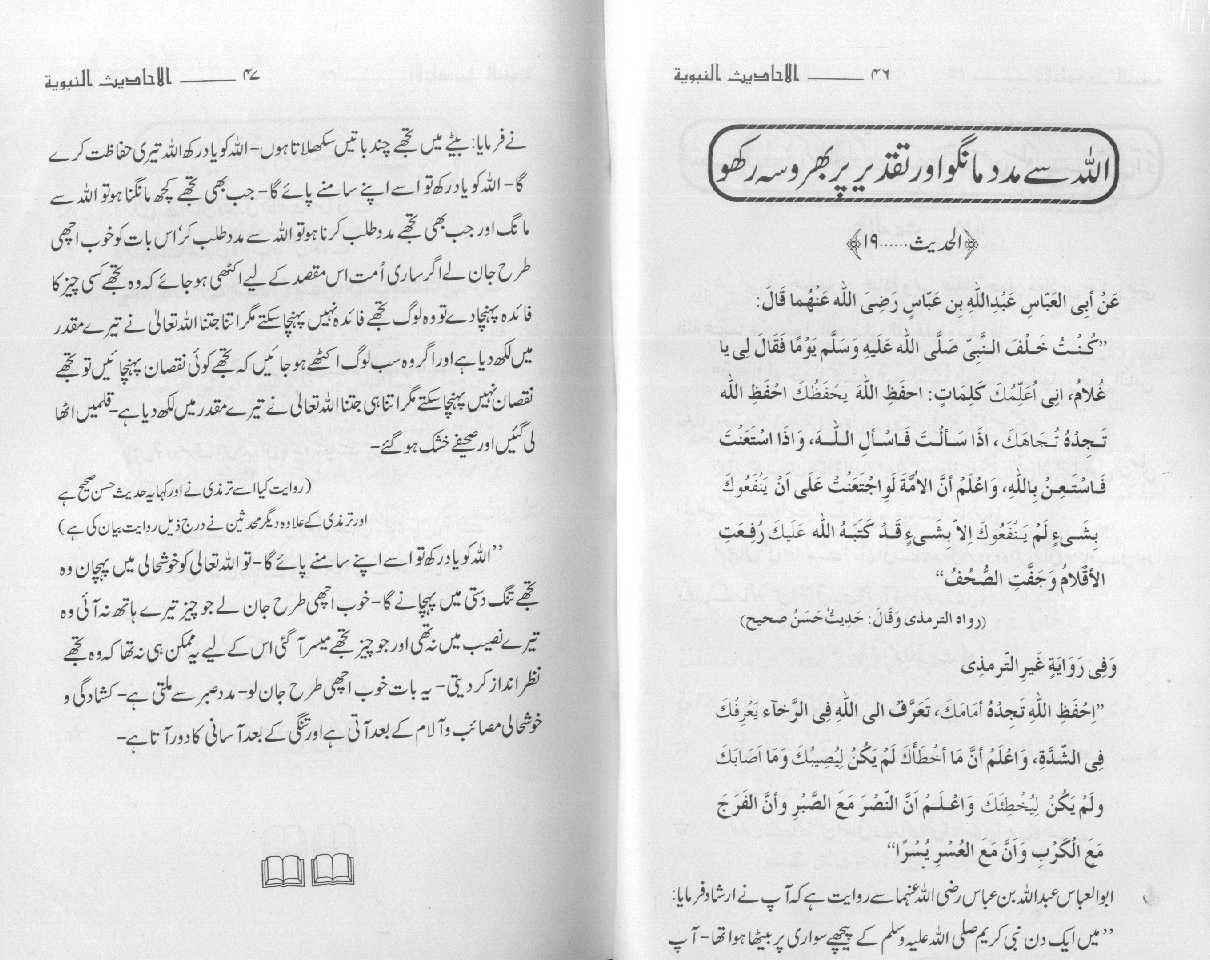 الاحادیث النبویة ۴۶
اللہ سے مدد مانگو اور تقدیر پر بھروسہ رکھو
﴿الحدیث......۱۹﴾
عَنْ أبِی العَبَّاسِ عَبْدِاللّٰهِ بِن عَبّاسٍ رَضِیَ اللّٰه عَنْهُما قَالَ:
”کُنْتُ خَلْفَ النَّبِیِّ صَلَّی اللّٰه عَلَیْهِ وَسَلَّم یَوْمًا فَقَالَ لِی یا
غُلامُ، اِنِی اُعَلِّمُكَ کَلِمَاتٍ: احفَظِ اللّٰهَ یَحْفَظْكَ احْفَظِ اللّٰه
تَجِدْهُ تُجَاهَكَ، اذَا سَألْتَ فَاسْألِ اللّٰهَ، وَاذَا اسْتَعَنْتَ
فَاسْتَعِنْ بِاللّٰهِ، وَاعْلَمْ أنَّ الاُمَّةَ لَوِاجْتَمَعَتْ عَلَی اَنْ یَنْفَعُوكَ
بِشَیءٍ لَمْ یَنْفَعُوكَ اِلاَّ بِشَیءٍ قَدْ کَتَبَهُ اللّٰه عَلَیكَ رُفِعَتِ
الأقْلامُ وَجَفَّتِ الصُّحُفُ“
(رواه الترمذی وَقَالَ: حَدِیثٌ حَسَنٌ صحیح)
وَفِی رَوَایَةٍ غَیرِ التَرمذِی
”اِحْفَظِ اللّٰهِ تَجِدْهُ أمَامَكَ، تَعَرَّفْ الی اللّٰهِ فِی الرَّخاء یَعْرِفْكَ
فِی الشِّدَّةِ، وَاعْلَمْ أنَّ مَا أخْطَأَكَ لَمْ یَکُنْ لِیُصِیْبَكَ وَمَا اَصَابَكَ
ولَمْ یَکُنْ لِیُخْطِئَكَ وَاعْلَمْ اَنَّ النّصْرَ مَعَ الصَّبْرِ وأنَّ الفَرَجَ
مَعَ الْکَرْبِ وَاَنَّ مَعَ العُسْرِ یُسْرًا“
ابوالعباس عبداللہ بن عباس رضی اللہ عنہما سے روایت ہے کہ آپ نے ارشاد فرمایا:
”میں ایک دن نبی کریم صلی اللہ علیہ وسلم کے پیچھے سواری پر بیٹھا ہوا تھا۔ آپ
الاحادیث النبویة ۴۷
نے فرمایا: بیٹے میں تجھے چند باتیں سکھلاتا ہوں۔ اللہ کو یاد رکھ اللہ تیری حفاظت کرے
گا۔ اللہ کو یاد رکھ تو اسے اپنے سامنے پائے گا۔ جب بھی تجھے کچھ مانگنا ہو تو اللہ سے
مانگ اور جب بھی تجھے مدد طلب کرنا ہو تو اللہ سے مدد طلب کر‘ اس بات کو خوب اچھی
طرح جان لے اگر ساری اُمت اس مقصد کے لیے اکٹھی ہو جائے کہ وہ تجھے کسی چیز کا
فائدہ پہنچا دے تو وہ لوگ تجھے فائدہ نہیں پہنچا سکتے مگر اتنا جتنا اللہ تعالیٰ نے تیرے مقدر
میں لکھ دیا ہے اور اگر وہ سب لوگ اکٹھے ہو جائیں کہ تجھے کوئی نقصان پہنچائیں تو تجھے
نقصان نہیں پہنچا سکتے مگر اتنا ہی جتنا اللہ تعالیٰ نے تیرے مقدر میں لکھ دیا ہے۔ قلمیں اٹھا
لی گئیں اور صحیفے خشک ہو گئے۔
(روایت کیا اسے ترمذی نے اور کہا یہ حدیث حسن صحیح ہے
اور ترمذی کے علاوہ دیگر محدثین نے درج ذیل روایت بیان کی ہے)
”اللہ کو یاد رکھ تو اسے اپنے سامنے پائے گا۔ تو اللہ تعالی کو خوشحالی میں پہچان وہ
تجھے تنگ دستی میں پہچانے گا۔ خوب اچھی طرح جان لے جو چیز تیرے ہاتھ نہ آئی وہ
تیرے نصیب میں نہ تھی اور جو چیز تجھے میسر آ گئی اس کے لیے یہ ممکن ہی نہ تھا کہ وہ تجھے
نظر انداز کر دیتی۔ یہ بات خوب اچھی طرح جان لو۔ مدد صبر سے ملتی ہے۔ کشادگی و
خوشحالی مصائب و آلام کے بعد آتی ہے اور تنگی کے بعد آسانی کا دور آتا ہے۔